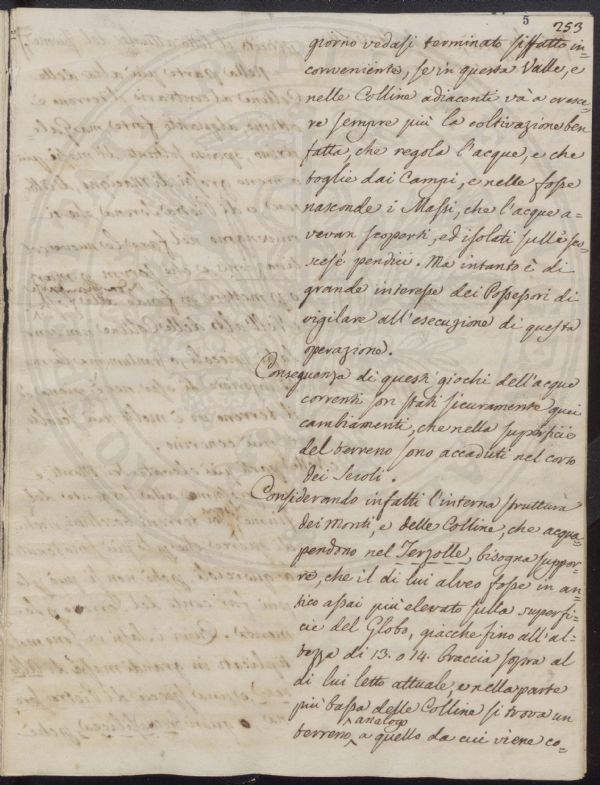 5
253
giorno vedasi terminato siffatto in=
conveniente, se in questa Valle, e
nelle Colline adiacenti và a cresce=
re sempre più la coltivazione ben
fatta, che regola l'acque, e che
toglie dai Campi, e nelle fosse
nasconde i Massi, che l'acque a=
vevan scoperti, ed isolati sulle sco=
scese pendici. Ma intanto è di
grande interesse dei Possessori di
vigilare all'esecuzione di questa
operazione.
Conseguenza di questi giochi dell'acque
correnti son stati sicuramente quei
cambiamenti, che nella superficie
del terreno sono accaduti nel corso
dei Secoli.
Considerando infatti l'interna struttura
dei Monti, e delle Colline, che acqua=
pendono nel Terzolle, bisogna suppor=
re, che il di lui alveo fosse in an=
tico assai più elevato sulla superfi=
cie del Globo, giacche fino all'al=
tezza di 13. o 14. braccia sopra al
di lui letto attuale, e nella parte
più bassa delle Colline si trova un
terreno analogo a quello da cui viene co=